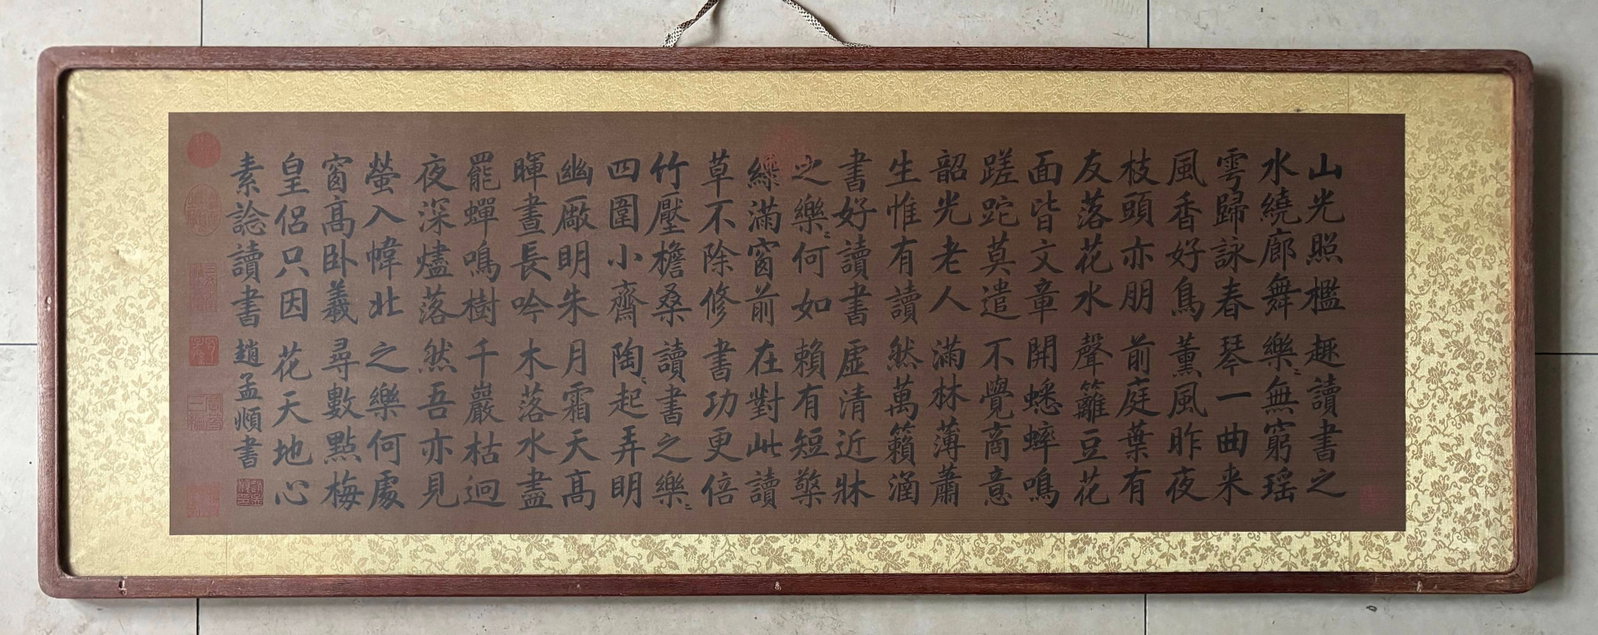 山光照檻
水繞廊舞
雩歸詠春
風香好鳥
枝頭亦朋
友落花水
面皆文章
蹉跎莫遣
韶光老人
生惟有讀
書好讀書
之樂〻何如
綠滿窗前
草不除修
竹壓檐桑
四圍小齋
幽廠明朱
暉晝長吟
罷蟬鳴樹
夜深燼落
螢入幃北
窗高卧羲
皇侶只因
素諗讀書
趣讀書之
樂〻無窮瑤
琴一曲来
薰風昨夜
前庭葉有
聲籬豆花
開蟋蟀鳴
不覺商意
滿林薄蕭
然萬籟涵
虛清近牀
賴有短檠
在對此讀
書功更倍
讀書之樂〻
陶〻起弄明
月霜天高
木落水盡
千巖枯迥
然吾亦見
之樂何處
尋數點梅
花天地心
趙孟頫書